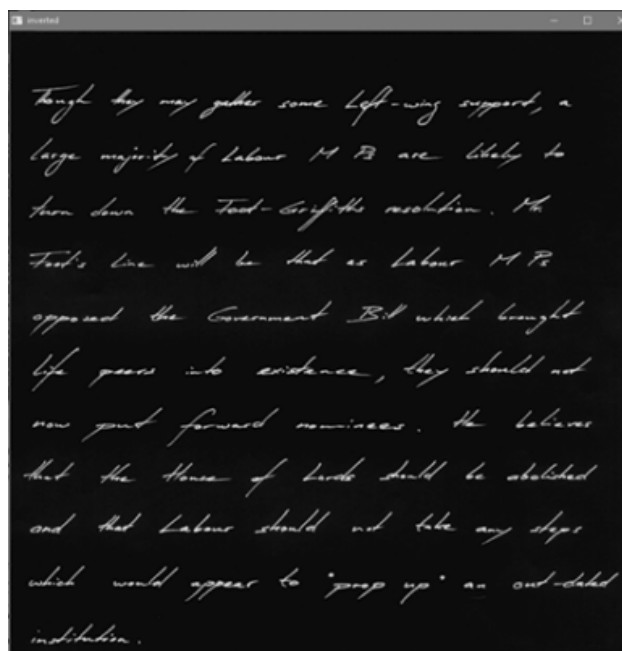 inverted
Though they may gather some Left-wing support, a
large majority of Labour M Ps are likely to
turn down the Foot-Griffiths resolution. Mr.
Foot's line will be that as Labour M Ps
opposed the Government Bill which brought
life peers into existence, they should not
now put forward nominees. He believes
that the House of Lords should be abolished
and that Labour should not take any steps
which would appear to "prop up" an out-dated
institution.